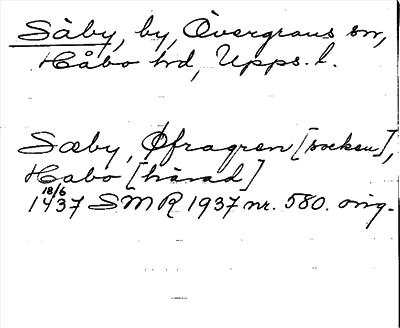 Såby, by, Övergrans sn,
Håbo hd, Upps. l.
Sæby, Øfragren [socken],
Habo [härad]
18/6
1437 SMR 1937 nr. 580. orig.